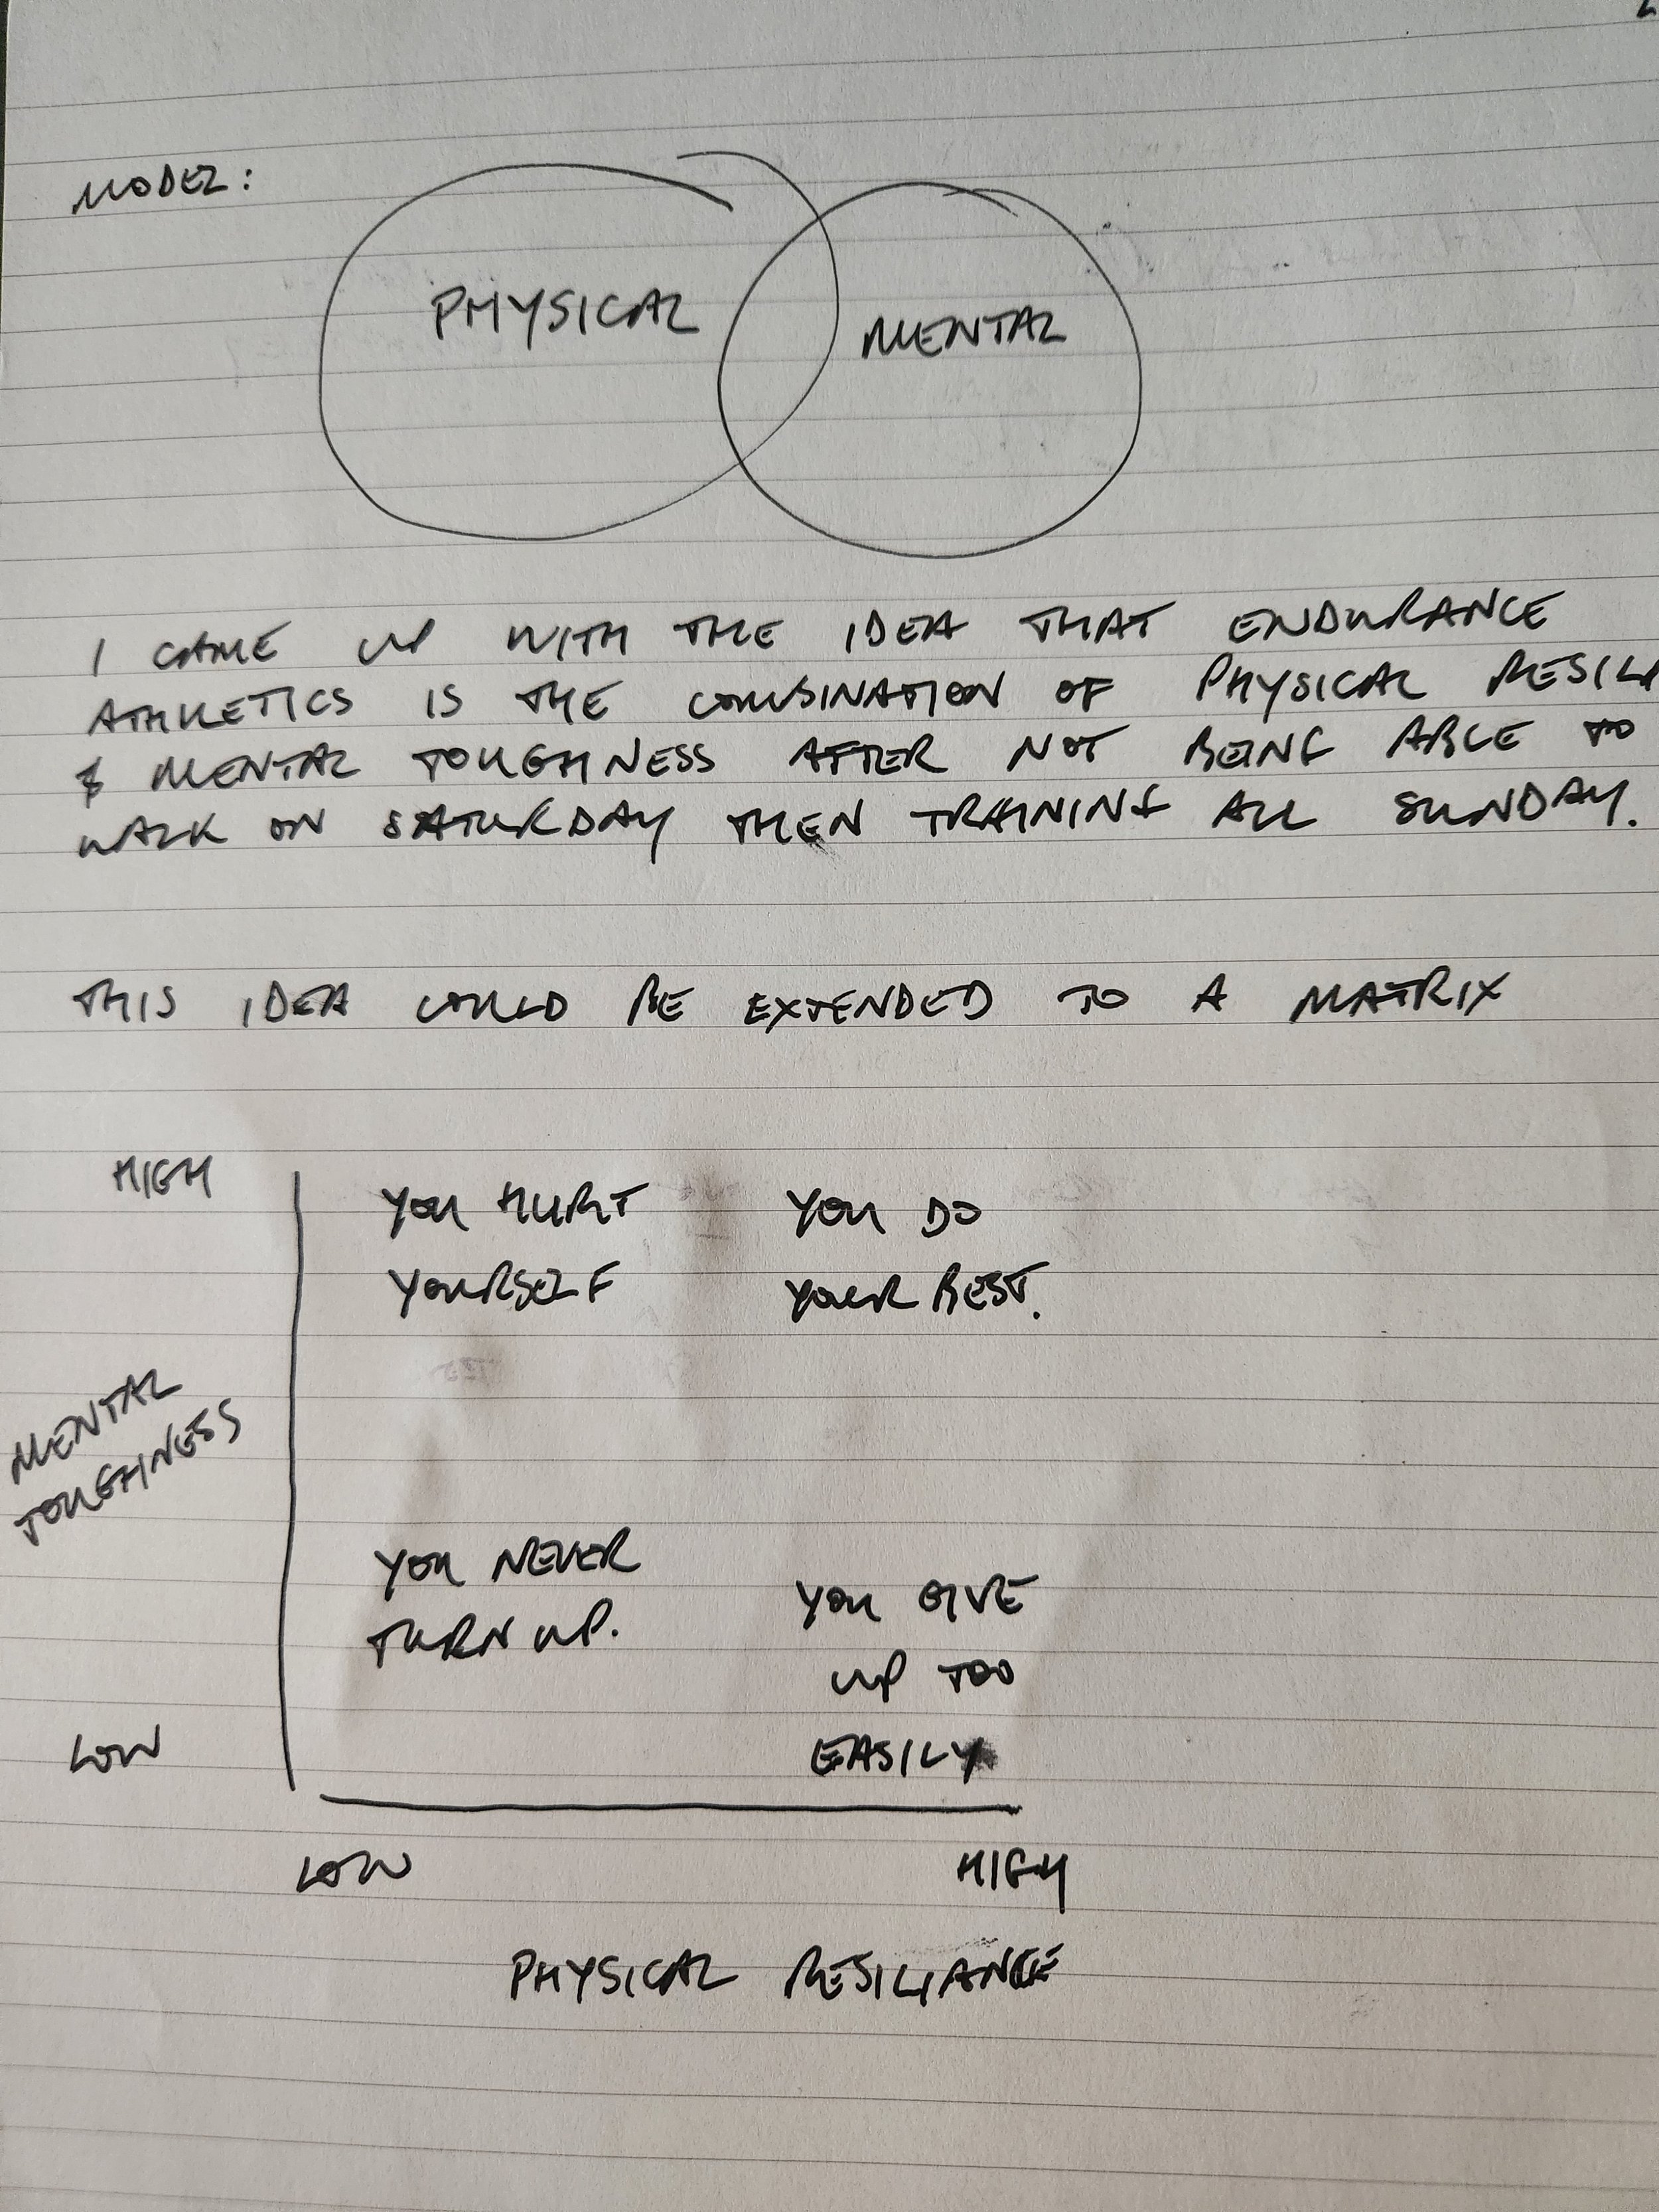 MODEL:
PHYSICAL
MENTAL
I CAME UP WITH THE IDEA THAT ENDURANCE
ATHLETICS IS THE COMBINATION OF PHYSICAL RESILI
& MENTAL TOUGHNESS AFTER NOT BEING ABLE TO
WALK ON SATURDAY THEN TRAINING ALL SUNDAY.
THIS IDEA COULD BE EXTENDED TO A MATRIX
HIGH
YOU HURT
YOURSELF
YOU DO
YOUR BEST.
MENTAL
TOUGHNESS
YOU NEVER
TURN UP.
YOU GIVE
UP TOO
EASILY
LOW
LOW
HIGH
PHYSICAL RESILIANCE